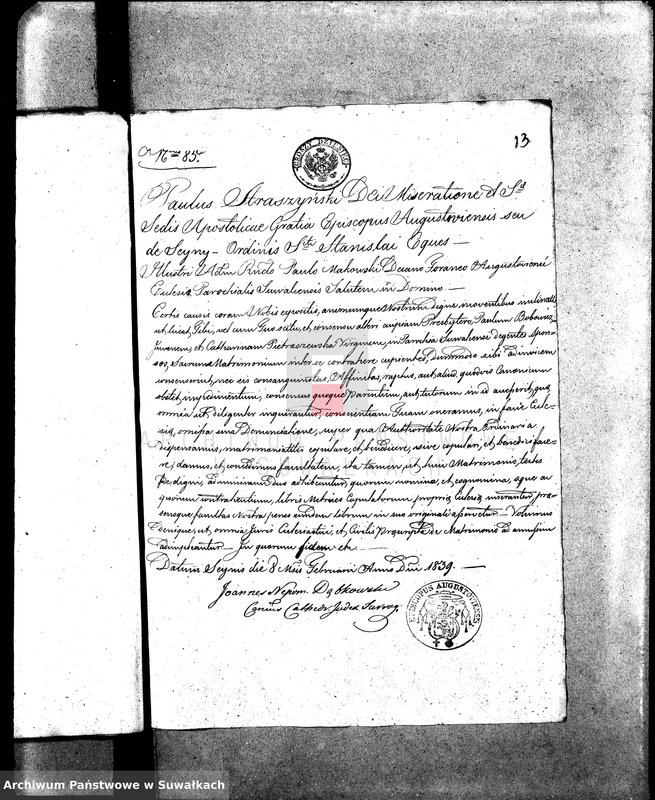 13
Nrus 85.
Paulus Straszyński Dei Miseratione et Sæ
Sedis Apostolicae Gratia Episcopus Augustoviensis seu
de Seyny – Ordinis Sti Stanislai Eques –
Illustri Adm Rndo Paulo Makowski Decano Foraneo Augustoviensi
Ecclesiæ Parochialis Suvalcensis Salutem in Domino. –
Certis causis coram Nobis expositis, animumque Nostrum digne moventibus inclinati
ut liceat Tibi, vel cum Tuo scitu, et consensu alteri cuipiam Presbytero, Paulum
Juvenem, et Catharinam Pietraszewska Virginem, in Parochia Suvalcensi degentes Spon-
sos, Sacrum Matrimonium inter se contrahere cupientes, dummodo sibi ad invicem
consenserint, nec eis consanguinitas, Affinitas, raptus, aut aliud quodvis Canonicum
obstet impedimentum, consensus quoque Parentum, aut tutorum in id accesserit, quæ
omnia ut diligenter inquirantur, conscientiam Tuam oneramus, in facie Eccle-
siæ, omissa una Denunciatione, super qua Authoritate Nostra Ordinaria
dispensamus, matrimonialiter copulare, et benedicere, sive copulari, et benedici face-
re, damus, et concedimus facultatem, ita tamen, ut huic Matrimonio, testes
fide digni, ad minimum duo adhibeantur, quorum nomina, et cognomina, æque a
quorum contrahentium, libris Metrices Copulatorum propriæ Ecclesiæ inserantur, præ-
sensque facultas Nostra penes eundem librum in suo originali asservetur. Volumus
denique, ut omnia Juris Ecclesiastici, et Civilis Præscripta de Matrimonio ad amussim
adimpleantur. – In quorum fidem etc. –
Datum Seynis die 8 Mensis Februarii Anno Dni 1839. –
Joannes Nepom. Dąbkowski
Canicus Cathedr. Judex Surrog.
EPISCOPUS AUGUSTOVIENSIS
Archiwum Państwowe w Suwałkach